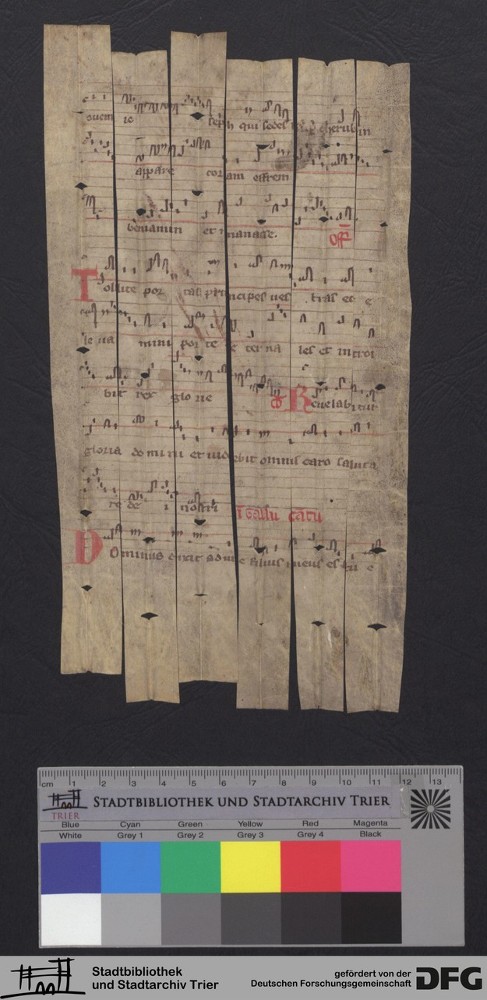 ouem ie seph qui sedes sup cherubin
appare coram effrem
beniamin et manasse. Off
Tollite por tas principes ues tras et e
le ua mini por te e ter na les et introi
bit rex glo rie Co Reuelabitur
gloria domini et uidebit omnis caro saluta
re de i nostri
Dominus dixit ad me filius meus es tu e
cm 1 2 3 4 5 6 7 8 9 10 11 12 13
TRIER STADTBIBLIOTHEK UND STADTARCHIV TRIER
Blue Cyan Green Yellow Red Magenta
White Grey 1 Grey 2 Grey 3 Grey 4 Black
Stadtbibliothek
und Stadtarchiv Trier
gefördert von der
Deutschen Forschungsgemeinschaft
DFG